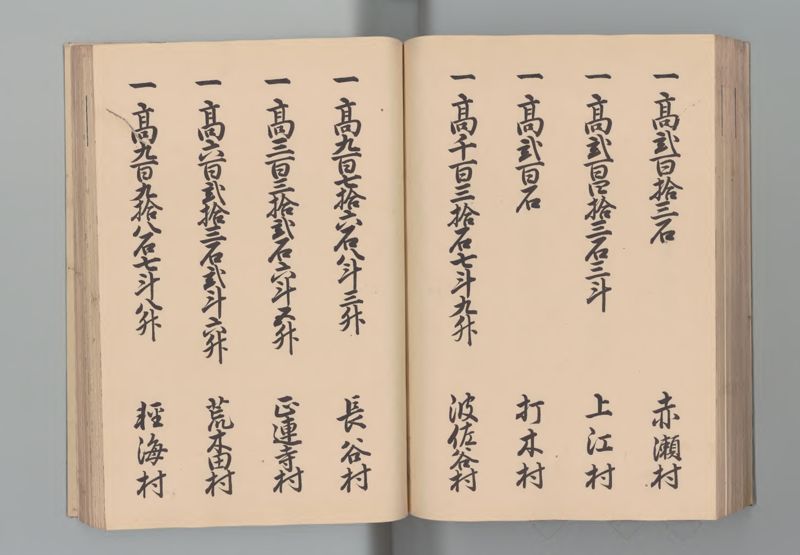 一高弐百拾三石 赤瀬村
一高弐百四拾三石三斗 上江村
一高弐百石 打木村
一高千百三拾石七斗九升 波佐谷村
一高九百七拾六石八斗三升 長谷村
一高三百三拾弐石六斗五升 正連寺村
一高六百弐拾三石弐斗六升 荒木田村
一高九百九拾八石七斗八升 軽海村